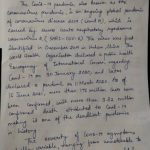 The Covid-19 pandemic, also known as the
coronavirus pandemic, is an ongoing global pandemic
of coronavirus disease 2019 (covid 19), which is
caused by severe acute respiratory syndrome
coronavirus 2 (SARS-COV-2). The virus was first
identified in December 2019 in Wuhan, China. The
World Health Organization declared a public health
Emergency of International Concern regarding
Covid-19 on 30 January 2020, and later
declared a pandemic on 11 March 2020. As of
15 June 2021, more than 176 million cases have
been confirmed, with more than 3.82 million
confirmed deaths attributed to Covid-19,
making it one of the deadliest pandemics
in history.
The severity of Covid-19 symptoms
is highly variable, ranging from unnoticeable to